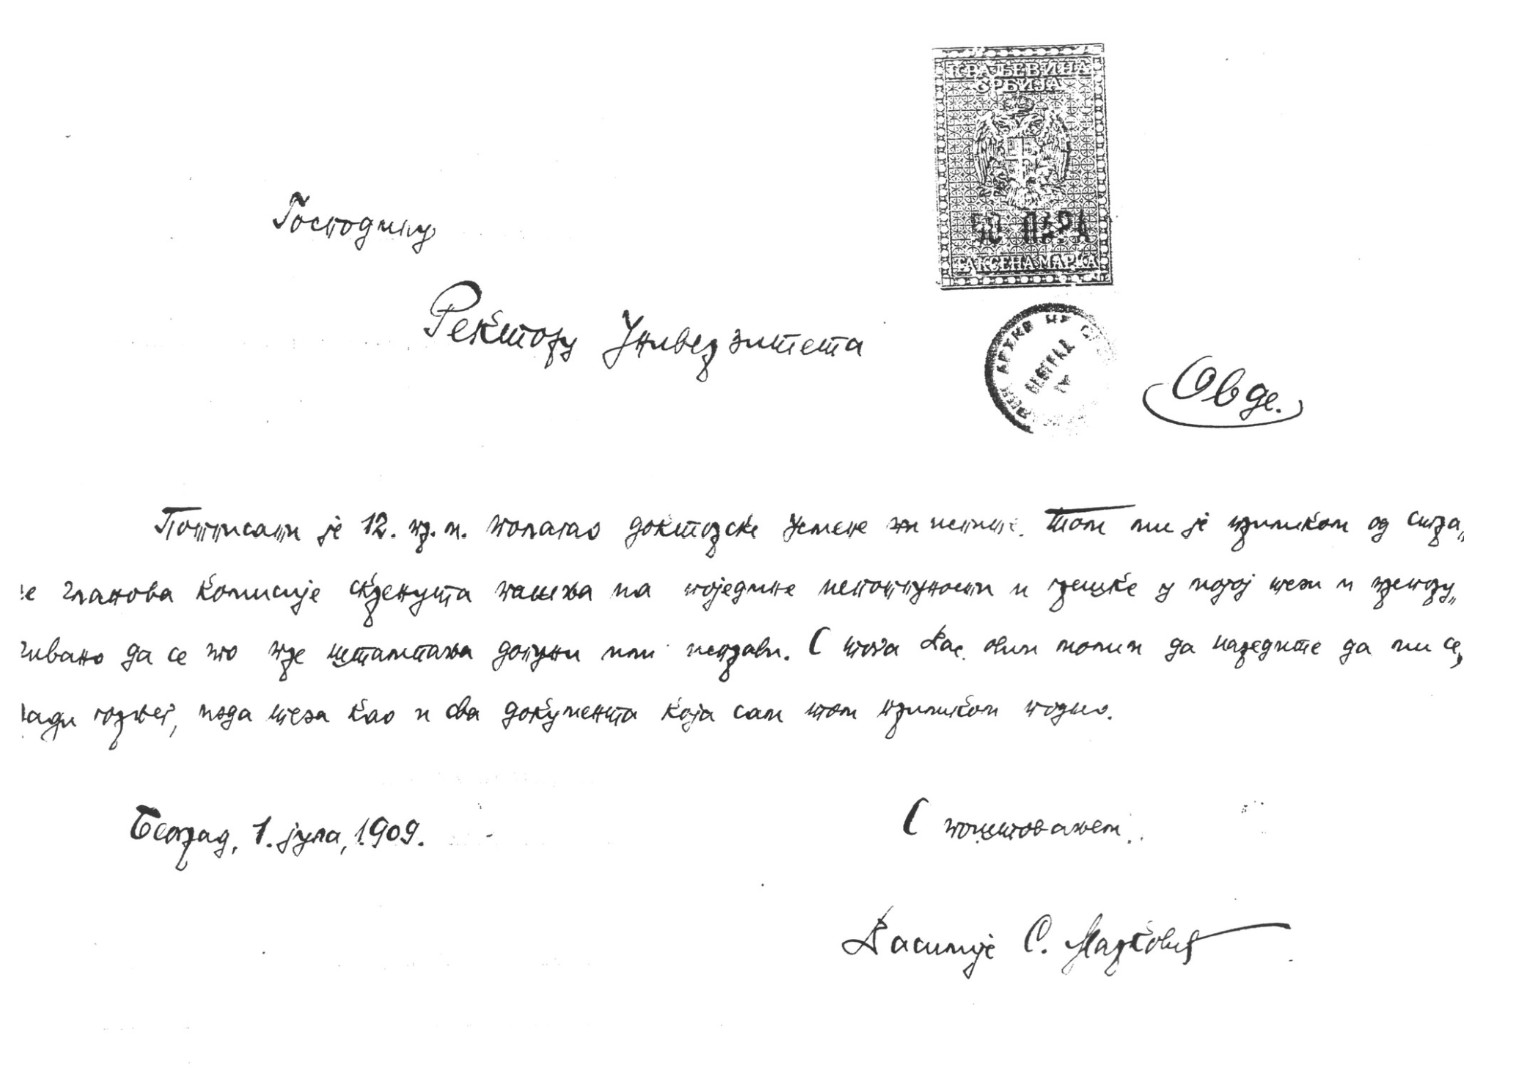 КРАЉЕВИНА
СРБИЈА
50 ПАРА
ТАКСЕНА МАРКА
Господину
Ректору Универзитета
БЕОГРАД
Овде.
Потписати је 12. пр. м. полагао докторске усмене испите. Том ми је приликом од стра„
не чланова комисије скренута пажња на поједине непотпуности и грешке у мојој тези и препору„
чивано да се то пре штампања допуни или исправи. С тога Вас овим молим да наредите да ми се,
ради горњег, изда теза као и сва документа која сам том приликом поднео.
Београд, 1. јула, 1909.
С поштовањем
Василије С. Марковић